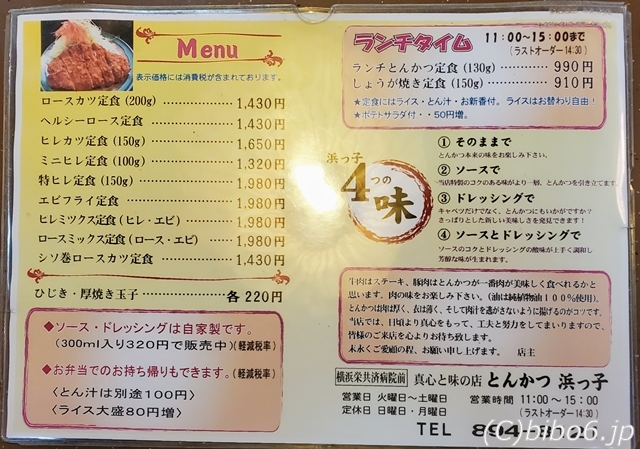 Menu
表示価格には消費税が含まれております。
ロースカツ定食 (200g) ………… 1,430円
ヘルシーロース定食 ………… 1,430円
ヒレカツ定食 (150g) ………… 1,650円
ミニヒレ定食 (100g) ………… 1,320円
特ヒレ定食 (150g) ………… 1,980円
エビフライ定食 ………… 1,980円
ヒレミックス定食 (ヒレ・エビ) …… 1,980円
ロースミックス定食 (ロース・エビ) … 1,980円
シソ巻ロースカツ定食 ………… 1,430円
ひじき・厚焼き玉子 ………… 各220円
◆ソース・ドレッシングは自家製です。
(300ml入り320円で販売中) (軽減税率)
◆お弁当でのお持ち帰りもできます。(軽減税率)
〈とん汁は別途100円〉
〈ライス大盛80円増〉
ランチタイム 11:00~15:00まで
(ラストオーダー14:30)
ランチとんかつ定食 (130g) …… 990円
しょうが焼き定食 (150g) …… 910円
★定食にはライス・とん汁・お新香付。ライスはお替わり自由!
★ポテトサラダ付・・50円増。
浜っ子
4つの味
① そのままで
とんかつ本来の味をお楽しみ下さい。
② ソースで
当店特製のコクのある味がより一層、とんかつを引き立てます
③ ドレッシングで
キャベツだけでなく、とんかつにもいかがですか?
さっぱりとした新しい美味しさを発見できます!
④ ソースとドレッシングで
ソースのコクとドレッシングの酸味が上手く調和し
芳醇な味が生まれます。
牛肉はステーキ、豚肉はとんかつが一番肉が美味しく食べれるかと
思います。肉の味をお楽しみ下さい。(油は純植物油100%使用)。
とんかつは肉は厚く、衣は薄く、そして肉汁を逃がさないように揚げるのがコツです。
当店では、日頃より真心をもって、工夫と努力をしてまいりますので、
皆様のご来店を心よりお待ち致します。
末永くご愛顧の程、お願い申し上げます。 店主
横浜栄共済病院前 真心と味の店 とんかつ 浜っ子
営業日 火曜日~土曜日 営業時間 11:00~15:00
定休日 日曜日・月曜日 (ラストオーダー14:30)
TEL 894-
(C)bibo6.jp